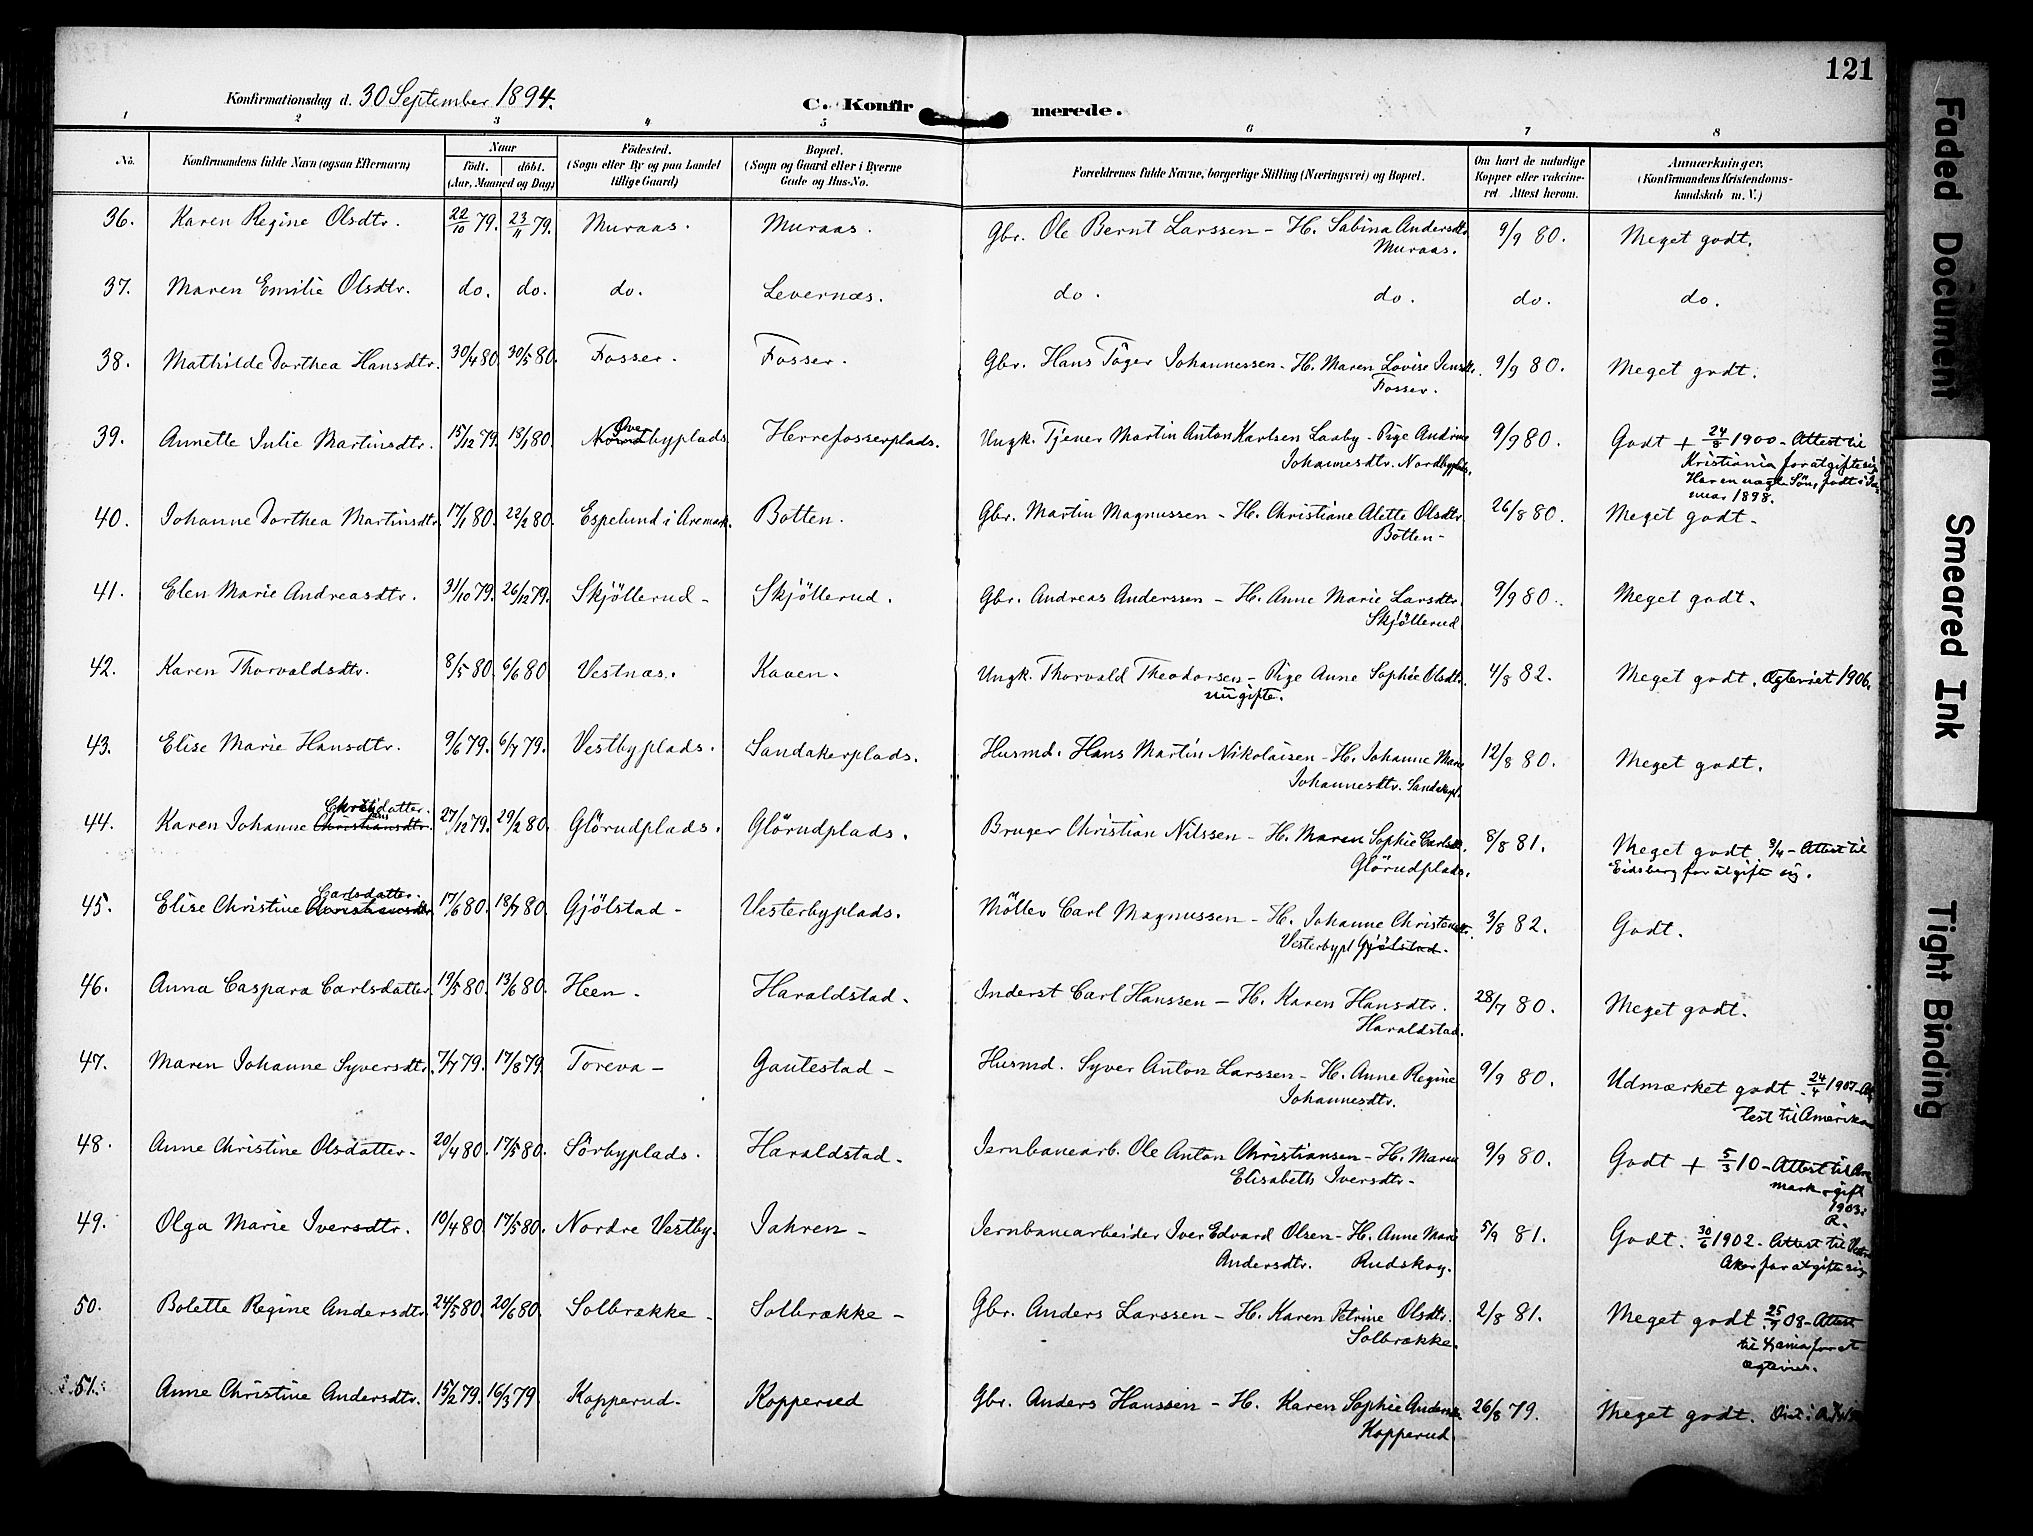 121
Konfirmationsdag d. 30 September 1894.
C. Konfirmerede.
1 2 3 4 5 6 7 8
No. Konfirmandens fulde Navn (ogsaa Efternavn) Naar født. døbt. (Aar, Maaned og Dag) Fødested. (Sogn eller By og paa Landet tillige Gaard) Bopæl. (Sogn og Gaard eller i Byerne Gade og Hus-No. Forældrenes fulde Navne, borgerlige Stilling (Næringsvei) og Bopæl. Om havt de naturlige Kopper eller vakcineret. Attest herom. Anmærkninger. (Konfirmandens Kristendomskundskab m. V.)
36. Karen Regine Olsdtr. 22/10 79. 23/11 79. Muraas. Muraas. Gbr. Ole Bernt Larssen - H. Sabina Andersdtr. 9/9 80. Meget godt.
Muraas.
37. Maren Emilie Olsdtr. do. do. do. Levernæs. do. do. do. do.
38. Mathilde Dorthea Hansdtr. 30/4 80. 30/5 80. Fosser. Fosser. Gbr. Hans Töger Johannessen - H. Maren Lovise Jensdtr. 9/9 80. Meget godt.
Fosser.
39. Annette Julie Martinsdtr. 15/12 79. 18/1 80. Nordbyplads Herrefosserplads. Ungk. Tjener Martin Anton Karlsen Laaby - Pige Andrine 9/9 80. Godt + 24/8 1900 - Attest til
Johannesdtr. Nordbyplds. Kristiania for at gifte sig
Har en uægte Sön, født i Ja-
nuar 1898.
40. Johanne Dorthea Martinsdtr. 17/1 80. 22/2 80. Espelund i Aremark. Botten. Gbr. Martin Magnussen - H. Christiane Alette Olsdtr. 26/8 80. Meget godt -
Botten -
41. Elen Marie Andreasdtr. 31/10 79. 26/12 79. Skjöllerud - Skjöllerud. Gbr. Andreas Anderssen - H. Anne Marie Larsdtr. 9/9 80. Meget godt.
Skjöllerud
42. Karen Thorvaldsdtr. 8/5 80. 6/6 80 Vestnæs. Kaaen. Ungk. Thorvald Theodorsen - Pige Anne Sophie Olsdtr. 4/8 82. Meget godt. Ægteviet 1906.
nu gifte.
43. Elise Marie Hansdtr. 9/6 79. 6/7 79. Vestbyplads. Sandakerplads. Husmd. Hans Martin Nikolaisen - H. Johanne Marie 12/8 80. Meget godt.
Johannesdtr. Sandakerpl.
44. Karen Johanne Christiansdtr. 27/12 79. 29/2 80. Glörudplads. Glörudplads. Bruger Christian Nilssen - H. Maren Sophie Carlsdtr. 8/8 81. Meget godt 3/4 - Attest til
Glörudplads. Eidsberg for at gifte sig.
Carlsdatter.
45. Elise Christine Christiansdtr. 17/6 80. 18/7 80. Gjölstad - Vesterbyplads. Möller Carl Magnussen - H. Johanne Christensdtr. 3/8 82. Godt.
Vesterbypl Gjölstad.
46. Anna Caspara Carlsdatter 19/5 80. 13/6 80. Heen. Haraldstad. Inderst Carl Hanssen - H. Karen Hansdtr. 28/7 80. Meget godt.
Haraldstad.
47. Maren Johanne Syversdtr. 7/7 79. 17/8 79. Toreva - Gautestad - Husmd. Syver Anton Larssen - H. Anne Regine 9/9 80. Udmærket godt. 24/4 1907 - At-
Johannesdtr. test til Amerika
48. Anne Christine Olsdatter - 20/4 80. 17/5 80. Sörbyplads. Haraldstad - Jernbanearb. Ole Anton Christiansen - H. Maren 9/9 80. Godt + 5/3 10 - Attest til Are-
Elisabeth Iversdtr - mark - gift
1903.
R.
49. Olga Marie Iversdtr. 10/4 80. 17/5 80. Nordre Vestby. Jahren - Jernbanearbeider Iver Edvard Olsen - H. Anne Marie 5/9 81. Godt. 30/6 1902 - Attest til Vestre
Andersdtr. Rudskog. Aker for at gifte sig
50. Bolette Regine Andersdtr. 24/5 80. 20/6 80. Solbrække - Solbrække - Gbr. Anders Larssen - H. Karen Petrine Olsdtr. 2/8 81. Meget godt 25/7 08 - Attest
Solbrække. til Xania for at
ægtevies.
51. Anne Christine Andersdtr. 15/2 79. 16/3 79. Kopperud. Kopperud Gbr. Anders Hanssen - H. Karen Sophie Andersdtr. 26/8 79. Meget godt.
Kopperud.
Faded Document
Smeared Ink
Tight Binding